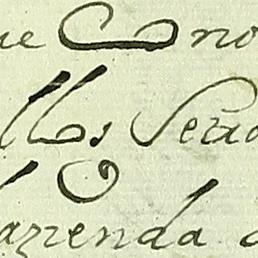 ue Cono
llos Será
azenda d